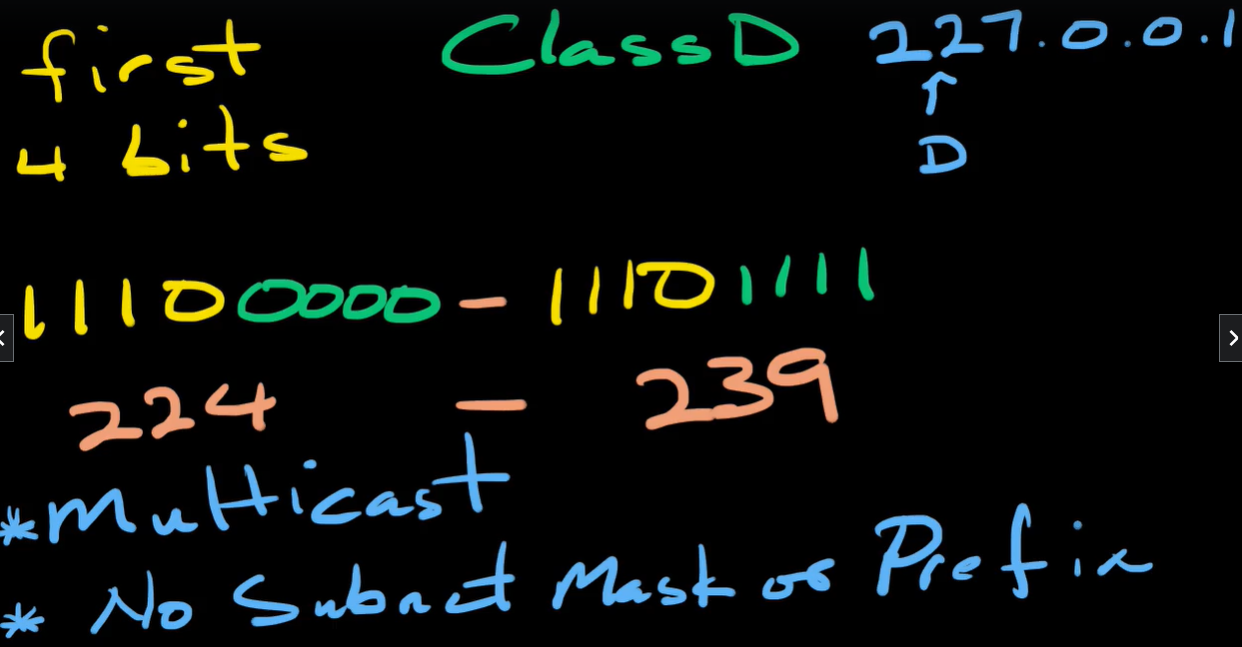 first
4 bits
Class D
227.0.0.1
↑
D
11100000 - 11101111
224 - 239
* Multicast
* No Subnet Mask or Prefix